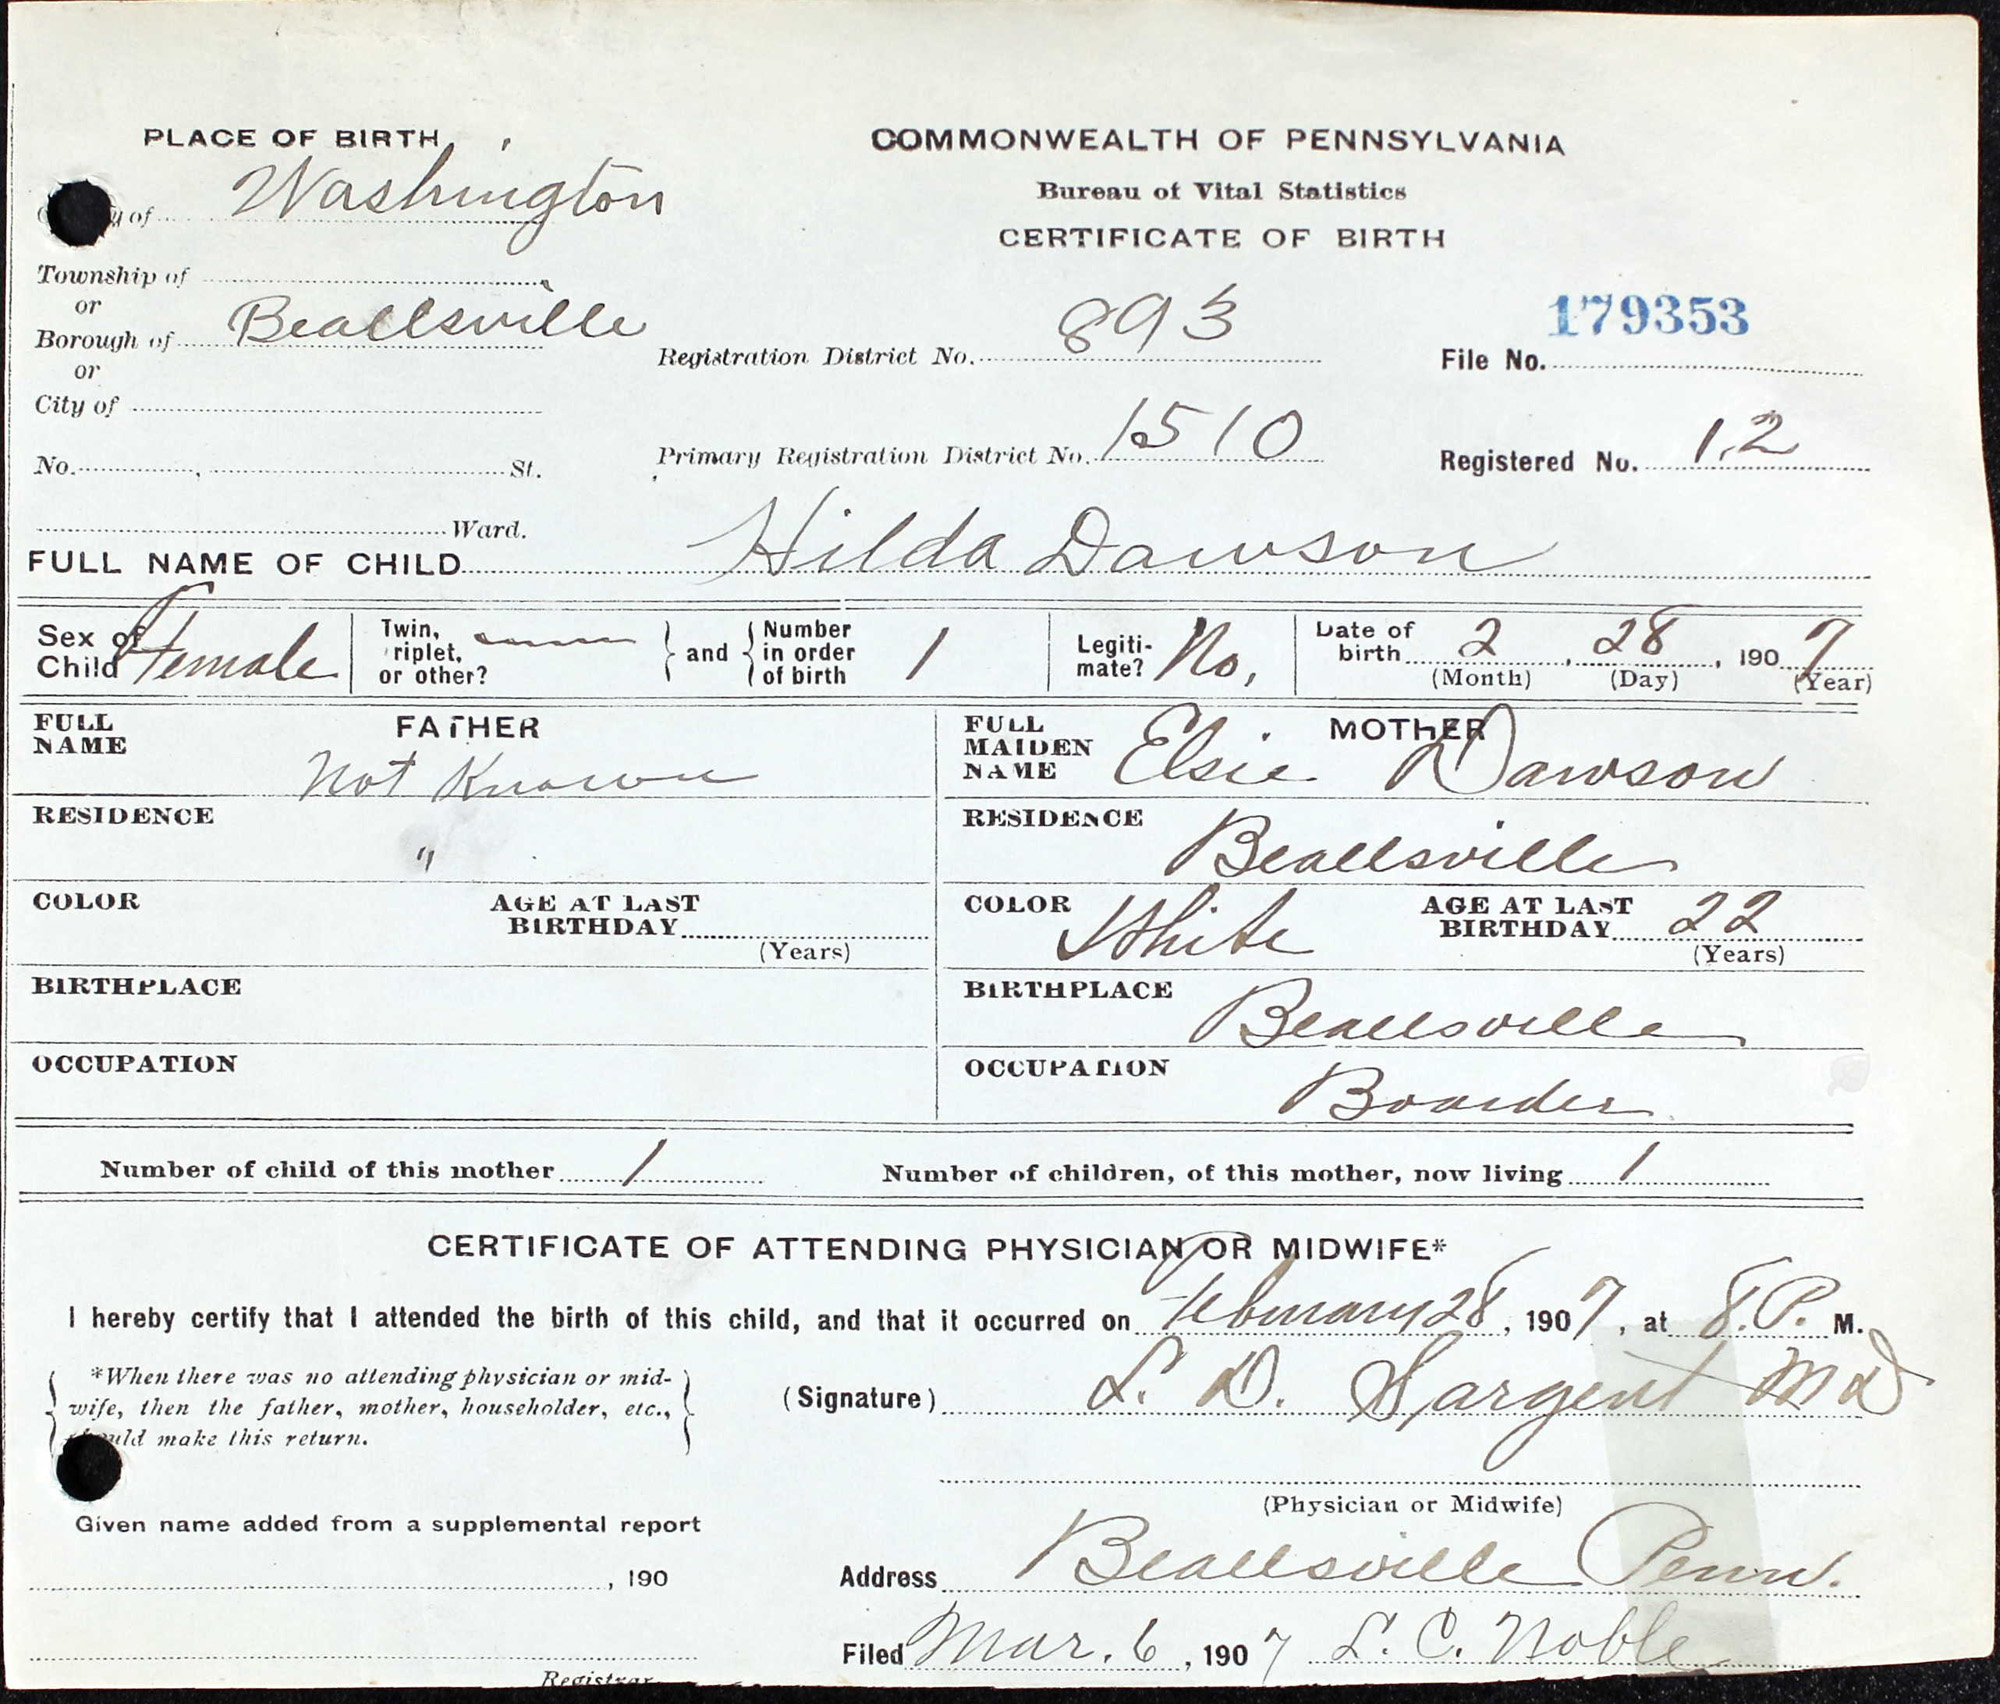 PLACE OF BIRTH
COMMONWEALTH OF PENNSYLVANIA
Bureau of Vital Statistics
CERTIFICATE OF BIRTH
y of Washington
Township of
or
Borough of Beallsville
or
City of
No. , St.
Ward.
Registration District No. 893
File No. 179353
Primary Registration District No. 1510
Registered No. 12
FULL NAME OF CHILD Hilda Dawson
Sex of Child Female
Twin, riplet, or other?
and
Number in order of birth 1
Legiti-mate? No,
Date of birth 2, 28, 1907
(Month) (Day) (Year)
FATHER
FULL NAME Not Known
RESIDENCE "
COLOR
AGE AT LAST BIRTHDAY
(Years)
BIRTHPLACE
OCCUPATION
MOTHER
FULL MAIDEN NAME Elsie Dawson
RESIDENCE Beallsville
COLOR White
AGE AT LAST BIRTHDAY 22
(Years)
BIRTHPLACE Beallsville
OCCUPATION Boarder
Number of child of this mother 1
Number of children, of this mother, now living 1
CERTIFICATE OF ATTENDING PHYSICIAN OR MIDWIFE*
I hereby certify that I attended the birth of this child, and that it occurred on February 28, 1907, at 8. P. M.
*When there was no attending physician or mid-
wife, then the father, mother, householder, etc.,
should make this return.
(Signature) L. D. Sargent M D
(Physician or Midwife)
Given name added from a supplemental report
, 190
Address Beallsville Penn.
Filed Mar. 6, 1907 L. C. Noble
Registrar